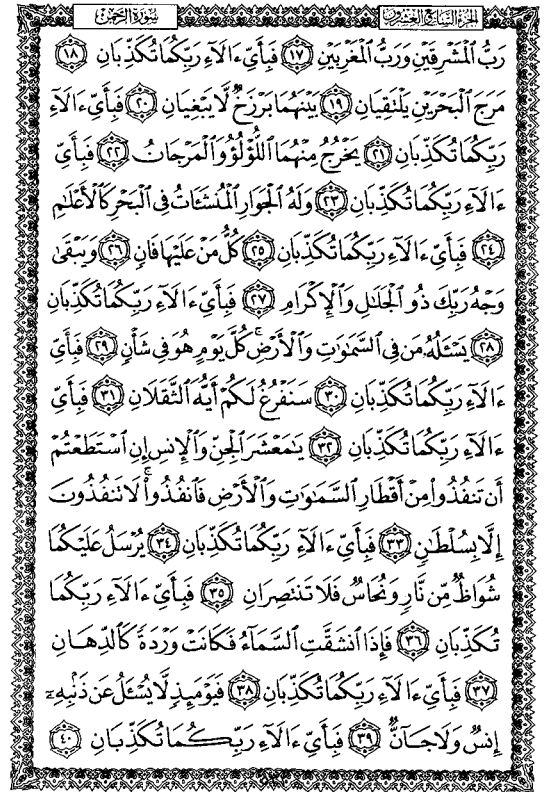 سورة الرحمن الجزء السابع والعشرون
رَبُّ ٱلْمَشْرِقَيْنِ وَرَبُّ ٱلْمَغْرِبَيْنِ ١٧ فَبِأَىِّ ءَالَآءِ رَبِّكُمَا تُكَذِّبَانِ ١٨
مَرَجَ ٱلْبَحْرَيْنِ يَلْتَقِيَانِ ١٩ بَيْنَهُمَا بَرْزَخٌ لَّا يَبْغِيَانِ ٢٠ فَبِأَىِّ ءَالَآءِ
رَبِّكُمَا تُكَذِّبَانِ ٢١ يَخْرُجُ مِنْهُمَا ٱللُّؤْلُؤُ وَٱلْمَرْجَانُ ٢٢ فَبِأَىِّ
ءَالَآءِ رَبِّكُمَا تُكَذِّبَانِ ٢٣ وَلَهُ ٱلْجَوَارِ ٱلْمُنشَـَٔاتُ فِى ٱلْبَحْرِ كَٱلْأَعْلَـٰمِ
٢٤ فَبِأَىِّ ءَالَآءِ رَبِّكُمَا تُكَذِّبَانِ ٢٥ كُلُّ مَنْ عَلَيْهَا فَانٍ ٢٦ وَيَبْقَىٰ
وَجْهُ رَبِّكَ ذُو ٱلْجَلَـٰلِ وَٱلْإِكْرَامِ ٢٧ فَبِأَىِّ ءَالَآءِ رَبِّكُمَا تُكَذِّبَانِ
٢٨ يَسْـَٔلُهُۥ مَن فِى ٱلسَّمَـٰوَٰتِ وَٱلْأَرْضِ ۚ كُلَّ يَوْمٍ هُوَ فِى شَأْنٍ ٢٩ فَبِأَىِّ
ءَالَآءِ رَبِّكُمَا تُكَذِّبَانِ ٣٠ سَنَفْرُغُ لَكُمْ أَيُّهَ ٱلثَّقَلَانِ ٣١ فَبِأَىِّ
ءَالَآءِ رَبِّكُمَا تُكَذِّبَانِ ٣٢ يَـٰمَعْشَرَ ٱلْجِنِّ وَٱلْإِنسِ إِنِ ٱسْتَطَعْتُمْ
أَن تَنفُذُوا۟ مِنْ أَقْطَارِ ٱلسَّمَـٰوَٰتِ وَٱلْأَرْضِ فَٱنفُذُوا۟ ۚ لَا تَنفُذُونَ
إِلَّا بِسُلْطَـٰنٍ ٣٣ فَبِأَىِّ ءَالَآءِ رَبِّكُمَا تُكَذِّبَانِ ٣٤ يُرْسَلُ عَلَيْكُمَا
شُوَاظٌ مِّن نَّارٍ وَنُحَاسٌ فَلَا تَنتَصِرَانِ ٣٥ فَبِأَىِّ ءَالَآءِ رَبِّكُمَا
تُكَذِّبَانِ ٣٦ فَإِذَا ٱنشَقَّتِ ٱلسَّمَآءُ فَكَانَتْ وَرْدَةً كَٱلدِّهَانِ
٣٧ فَبِأَىِّ ءَالَآءِ رَبِّكُمَا تُكَذِّبَانِ ٣٨ فَيَوْمَئِذٍ لَّا يُسْـَٔلُ عَن ذَنۢبِهِۦٓ
إِنسٌ وَلَا جَآنٌّ ٣٩ فَبِأَىِّ ءَالَآءِ رَبِّكُمَا تُكَذِّبَانِ ٤٠